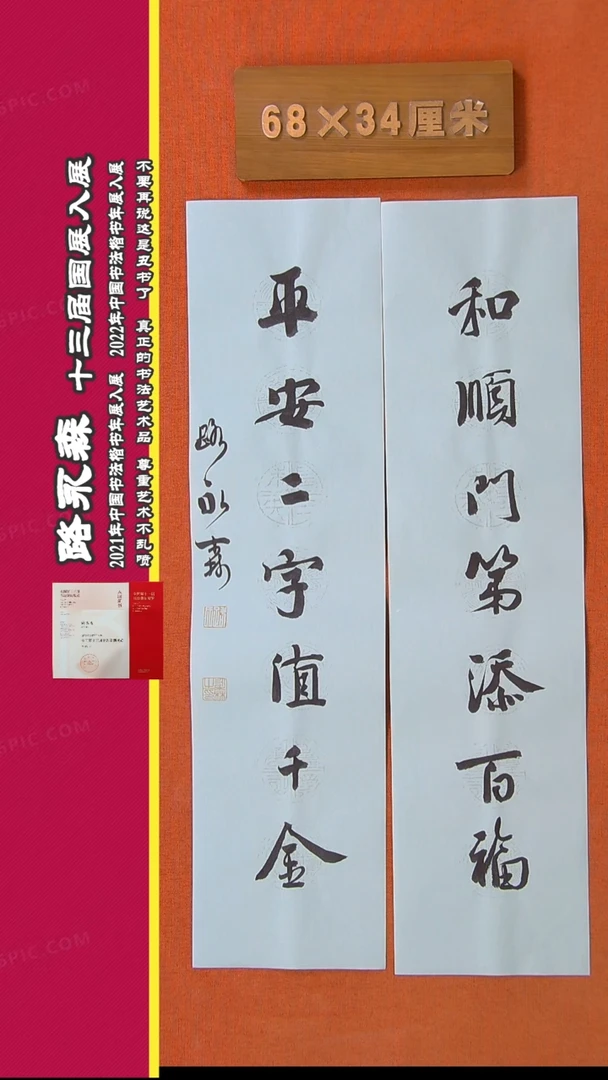 68×34厘米
和順門第添百福
平安二字值千金
路永森
路永森 十三届国展入展
2021年中国书法楷书年展入展 2022年中国书法楷书年展入展
不要再说这是丑书了 真正的书法艺术品 尊重艺术不乱喷